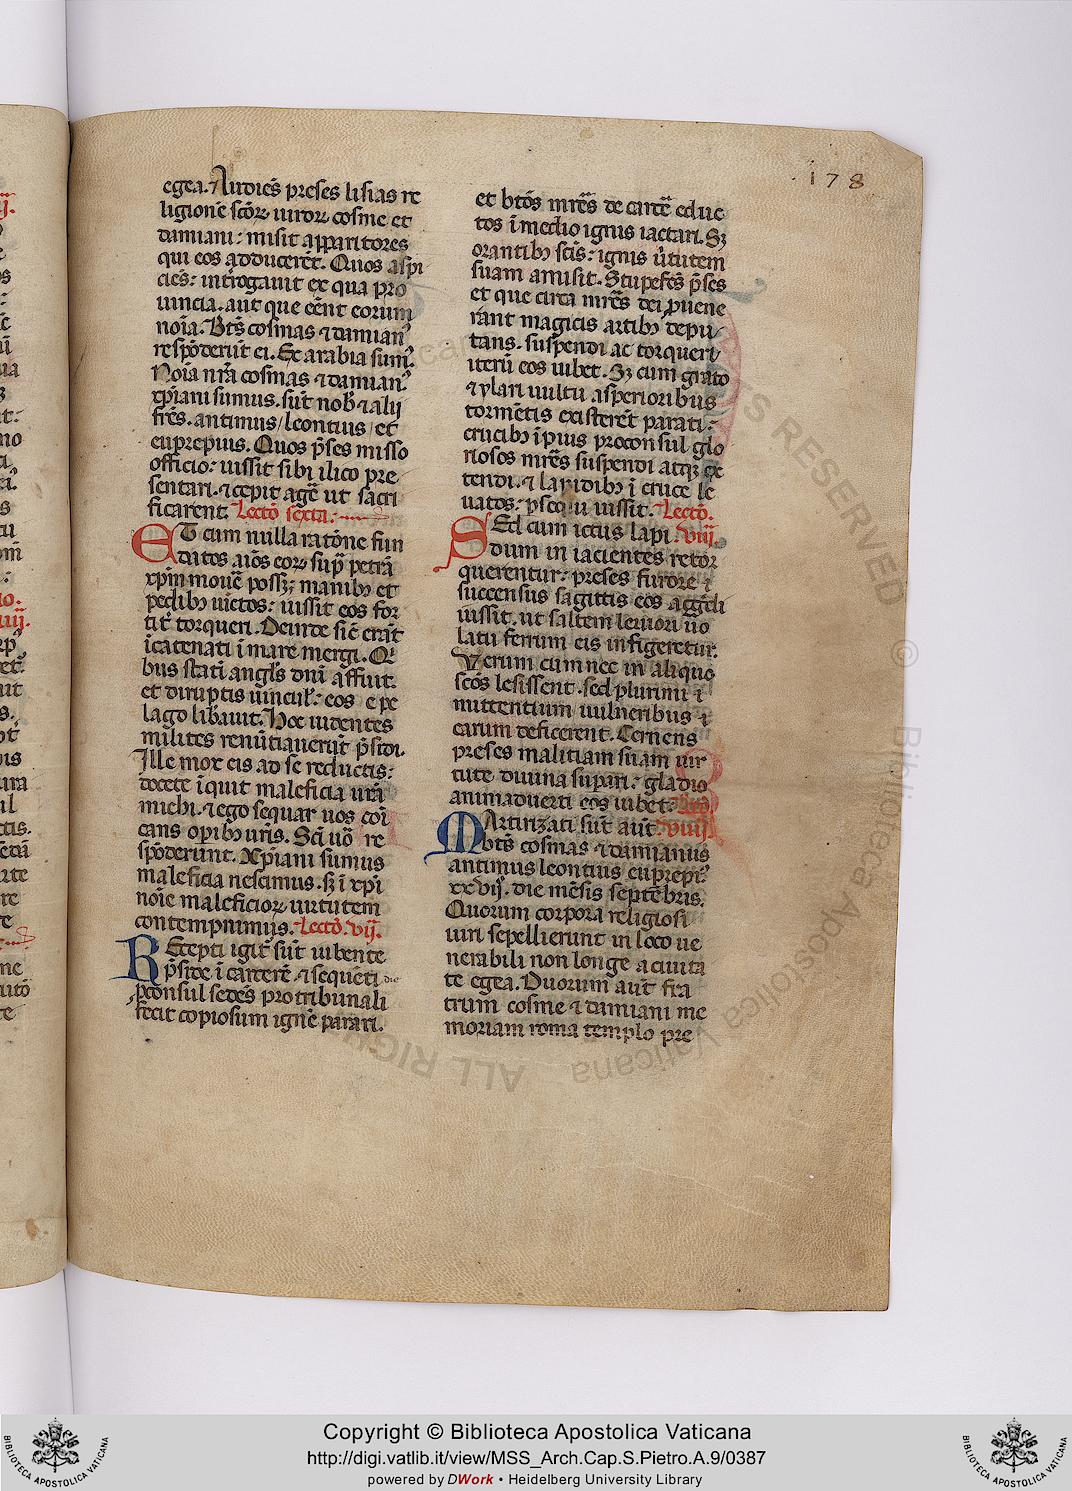 178
egea. ⁊ Audiēs preses lisias re
ligionē scōꝝ uiroꝝ cosme et
damiani: misit apparitores
qui eos adducerēt. Quos aspi
ciēs: intrōgauit ex qua pro
uincia. aut que eēnt eorum
noīa. Btī cosmas ⁊ damianꝰ
respōderūt ei. Ex arabia sumꝰ.
Noīa nr̄a cosmas ⁊ damianꝰ
xp̄iani sumus. sūt nob̄ ⁊ alij
fr̄es. antimus / leontius / et
euprepius. Quos p̄ses misso
officio: iussit sibi ilico pre
sentari. ⁊ cepit agē ut sacri
ficarent. Lectō sexta.
ET cum nulla ratōne fun
datos aīos eoꝝ sup̄ petrā
xp̄m mouē possꝫ; manibꝫ et
pedibꝫ uictos: iussit eos for
tit̄ torqueri. Deinde sic̄ erāt
īcatenati ī mare mergi. Qͥ
bus statī angl̄s dn̄i affuit.
et diruptis uincul̄: eos e pe
lago libauit. Hoc uidentes
milites renūtiauerūt p̄sidi.
Ille mox eis ad se reductis:
docete īquit maleficia ur̄a
michi. ⁊ ego sequar uos coī
cans opibꝫ ur̄is. Scī uō re
spōderunt. Xp̄iani sumus
maleficia nescimus. sꝫ ī xp̄i
noīe maleficioꝝ uirtutem
contempnimus. Lectō. vij.
REcepti igit̄ sūt iubente
p̄side ī carcerē. ⁊ sequēti die
ꝓconsul sedēs pro tribunali
fecit copiosum ignē parari.
et btōs mr̄es de carcē educ
tos ī medio ignis iactari. Sꝫ
orantibꝫ scīs: ignis ūtutem
suam amisit. Stupefcs p̄ses
et que circa mr̄es dei ꝓuene
rant magicis artibꝫ depu
tans. suspendi ac torqueri
iterū eos iubet. Sꝫ cum grato
⁊ ylari uultu asperioribus
tormētis existerēt parati:
crucibꝫ īpius proconsul glo
riosos mr̄es suspendi atqꝫ ex
tendi. ⁊ lapidibꝫ ī cruce le
uatos: ꝑsequi iussit. Lectō.
SEd cum ictus lapi viij.
dum in iacientes retor
querentur: preses furore ī
succensus sagittis eos aggͥdi
iussit. ut saltem leuiori uo
latu ferrum eis infigeretur.
Verum cum nec in aliquo
scōs lesissent. sed plurimi ī
mittentium uulneribus ī
earum deficerent. Cernens
preses malitiam suam uir
tute diuina supari: gladio
animaduerti eos iubet:
MArtirizati sūt aūt. viiij
btī cosmas ⁊ damianus
antimus leontius euprepiꝰ
xxvij. die mēsis septēbris.
Quorum corpora religiosi
uiri sepellierunt in loco ue
nerabili non longe a ciuita
te egea. Duorum aūt fra
trum cosme ⁊ damiani me
moriam roma templo pre
Copyright © Biblioteca Apostolica Vaticana
http://digi.vatlib.it/view/MSS_Arch.Cap.S.Pietro.A.9/0387
powered by DWork • Heidelberg University Library